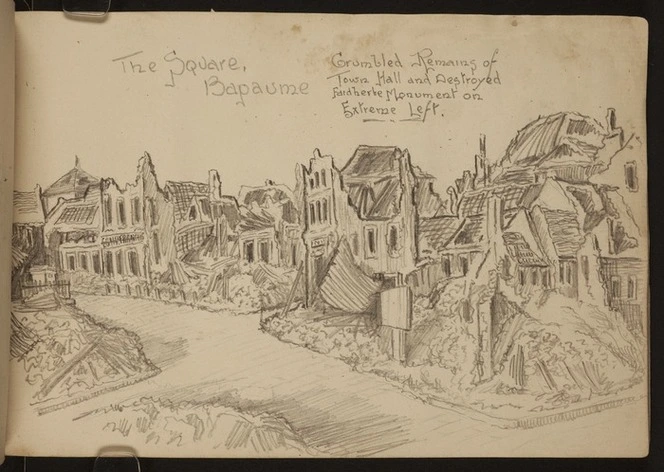 The Square,
Bapaume
Crumbled Remains of
Town Hall and Destroyed
Faidherbe Monument on
Extreme Left.